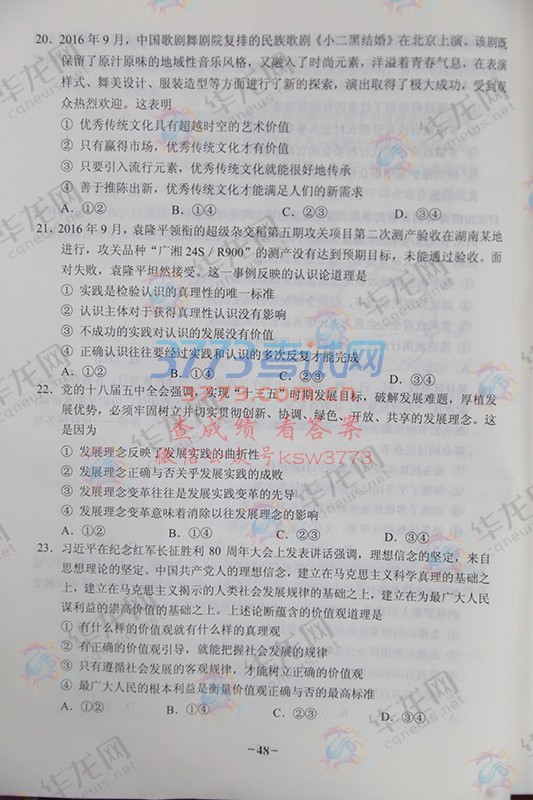 20. 2016 年 9 月，中国歌剧舞剧院复排的民族歌剧《小二黑结婚》在北京上演。该剧既
保留了原汁原味的地域性音乐风格，又融入了时尚元素，洋溢着青春气息，在表演
样式、舞美设计、服装造型等方面进行了新的探索，演出取得了极大成功，受到观
众热烈欢迎。这表明
① 优秀传统文化具有超越时空的艺术价值
② 只有赢得市场，优秀传统文化才有价值
③ 只要引入流行元素，优秀传统文化就能很好地传承
④ 善于推陈出新，优秀传统文化才能满足人们的新需求
A．①② B．①④ C．②③ D．③④
21. 2016 年 9 月，袁隆平领衔的超级杂交稻第五期攻关项目第二次测产验收在湖南某地
进行，攻关品种“广湘 24S / R900”的测产没有达到预期目标，未能通过验收。面
对失败，袁隆平坦然接受。这一事例反映的认识论道理是
① 实践是检验认识的真理性的唯一标准
② 认识主体对于获得真理性认识没有影响
③ 不成功的实践对认识的发展没有价值
④ 正确认识往往要经过实践和认识的多次反复才能完成
A．①② B．①④ C．②③ D．③④
22. 党的十八届五中全会强调，实现“十三五”时期发展目标，破解发展难题，厚植发
展优势，必须牢固树立并切实贯彻创新、协调、绿色、开放、共享的发展理念。这
是因为
① 发展理念反映了发展实践的曲折性
② 发展理念正确与否关乎发展实践的成败
③ 发展理念变革往往是发展实践变革的先导
④ 发展理念变革意味着消除以往发展理念的影响
A．①② B．①④ C．②③ D．③④
23. 习近平在纪念红军长征胜利 80 周年大会上发表讲话强调，理想信念的坚定，来自
思想理论的坚定。中国共产党人的理想信念，建立在马克思主义科学真理的基础之
上，建立在马克思主义揭示的人类社会发展规律的基础之上，建立在为最广大人民
谋利益的崇高价值的基础之上。上述论断蕴含的价值观道理是
① 有什么样的价值观就有什么样的真理观
② 有正确的价值观引导，就能把握社会发展的规律
③ 只有遵循社会发展的客观规律，才能树立正确的价值观
④ 最广大人民的根本利益是衡量价值观正确与否的最高标准
A．①② B．①④ C．②③ D．③④
-48-
3773考试网
3773.com.cn
查成绩 看答案
微信公众号ksw3773
华龙网
cqnews.net